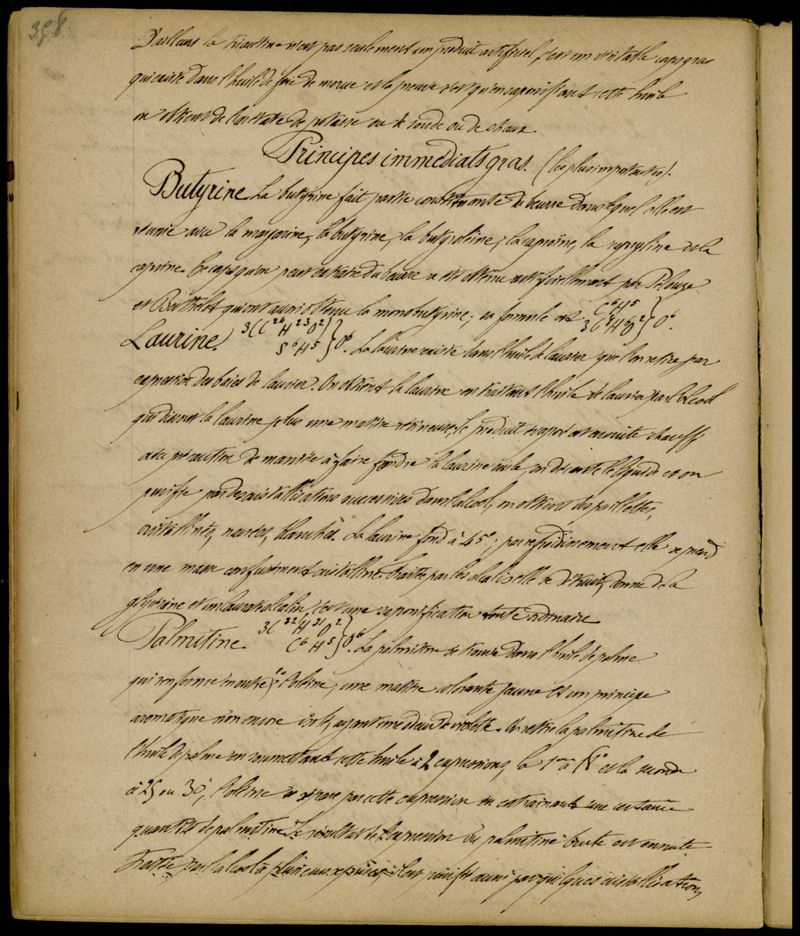 398
D'ailleurs la triacétine n'est pas seulement un produit artificiel, c'est un véritable corps gras
qui existe dans l'huile de foie de morue et la preuve c'est qu'en saponifiant cette huile
on obtient de l'acétate de potasse ou de soude ou de chaux
Principes immédiats gras. (les plus importants).
Butyrine La butyrine fait partie constituante du beurre dans lequel elle est
unie avec la margarine, la butyrine, la butyroléine, la caproïne, la capryline et la
caprine. Ce corps gras peut être extrait du beurre a été obtenu artificiellement par Pelouze
et Berthelot qui ont aussi obtenu la monobutyrine; sa formule est C6H5 3C8H7O2}O6.
Laurine. 3(C24H23O2) C6H5}O6. La laurine existe dans l'huile de laurier que l'on retire par
expression des baies de laurier. On obtient la laurine en traitant l'huile de laurier par l'alcool
qui dissout la laurine plus une matière résineuse, le produit évaporé est ensuite chauffé
avec précaution de manière à faire fondre la laurine seule, on décante le liquide et on
purifie par des cristallisations successives dans l'alcool, on obtient des paillettes
cristallines, nacrées, blanches. La laurine fond à 45°; par refroidissement elle se prend
en une masse confusément cristalline. Traitée par les alcalis elle se détruit, donne de la
glycérine et un laurate alcalin, c'est une saponification toute ordinaire
Palmitine. 3C32H31O2 C6H5}O6. La palmitine se trouve dans l'huile de palme
qui renferme en outre de l'oléine, une matière colorante jaune et un principe
aromatique non encore isolé, ayant une odeur de violette. On retire la palmitine de
l'huile de palme en soumettant cette huile à 2 expressions, la 1re à et la seconde
à 25 ou 30°, l'oléine se sépare par cette expression en entraînant une certaine
quantité de palmitine. Le résultat de l'expression du palmitine brute est ensuite
traitée par l'alcool à plusieurs reprises puis purifié aussi par quelques cristallisations